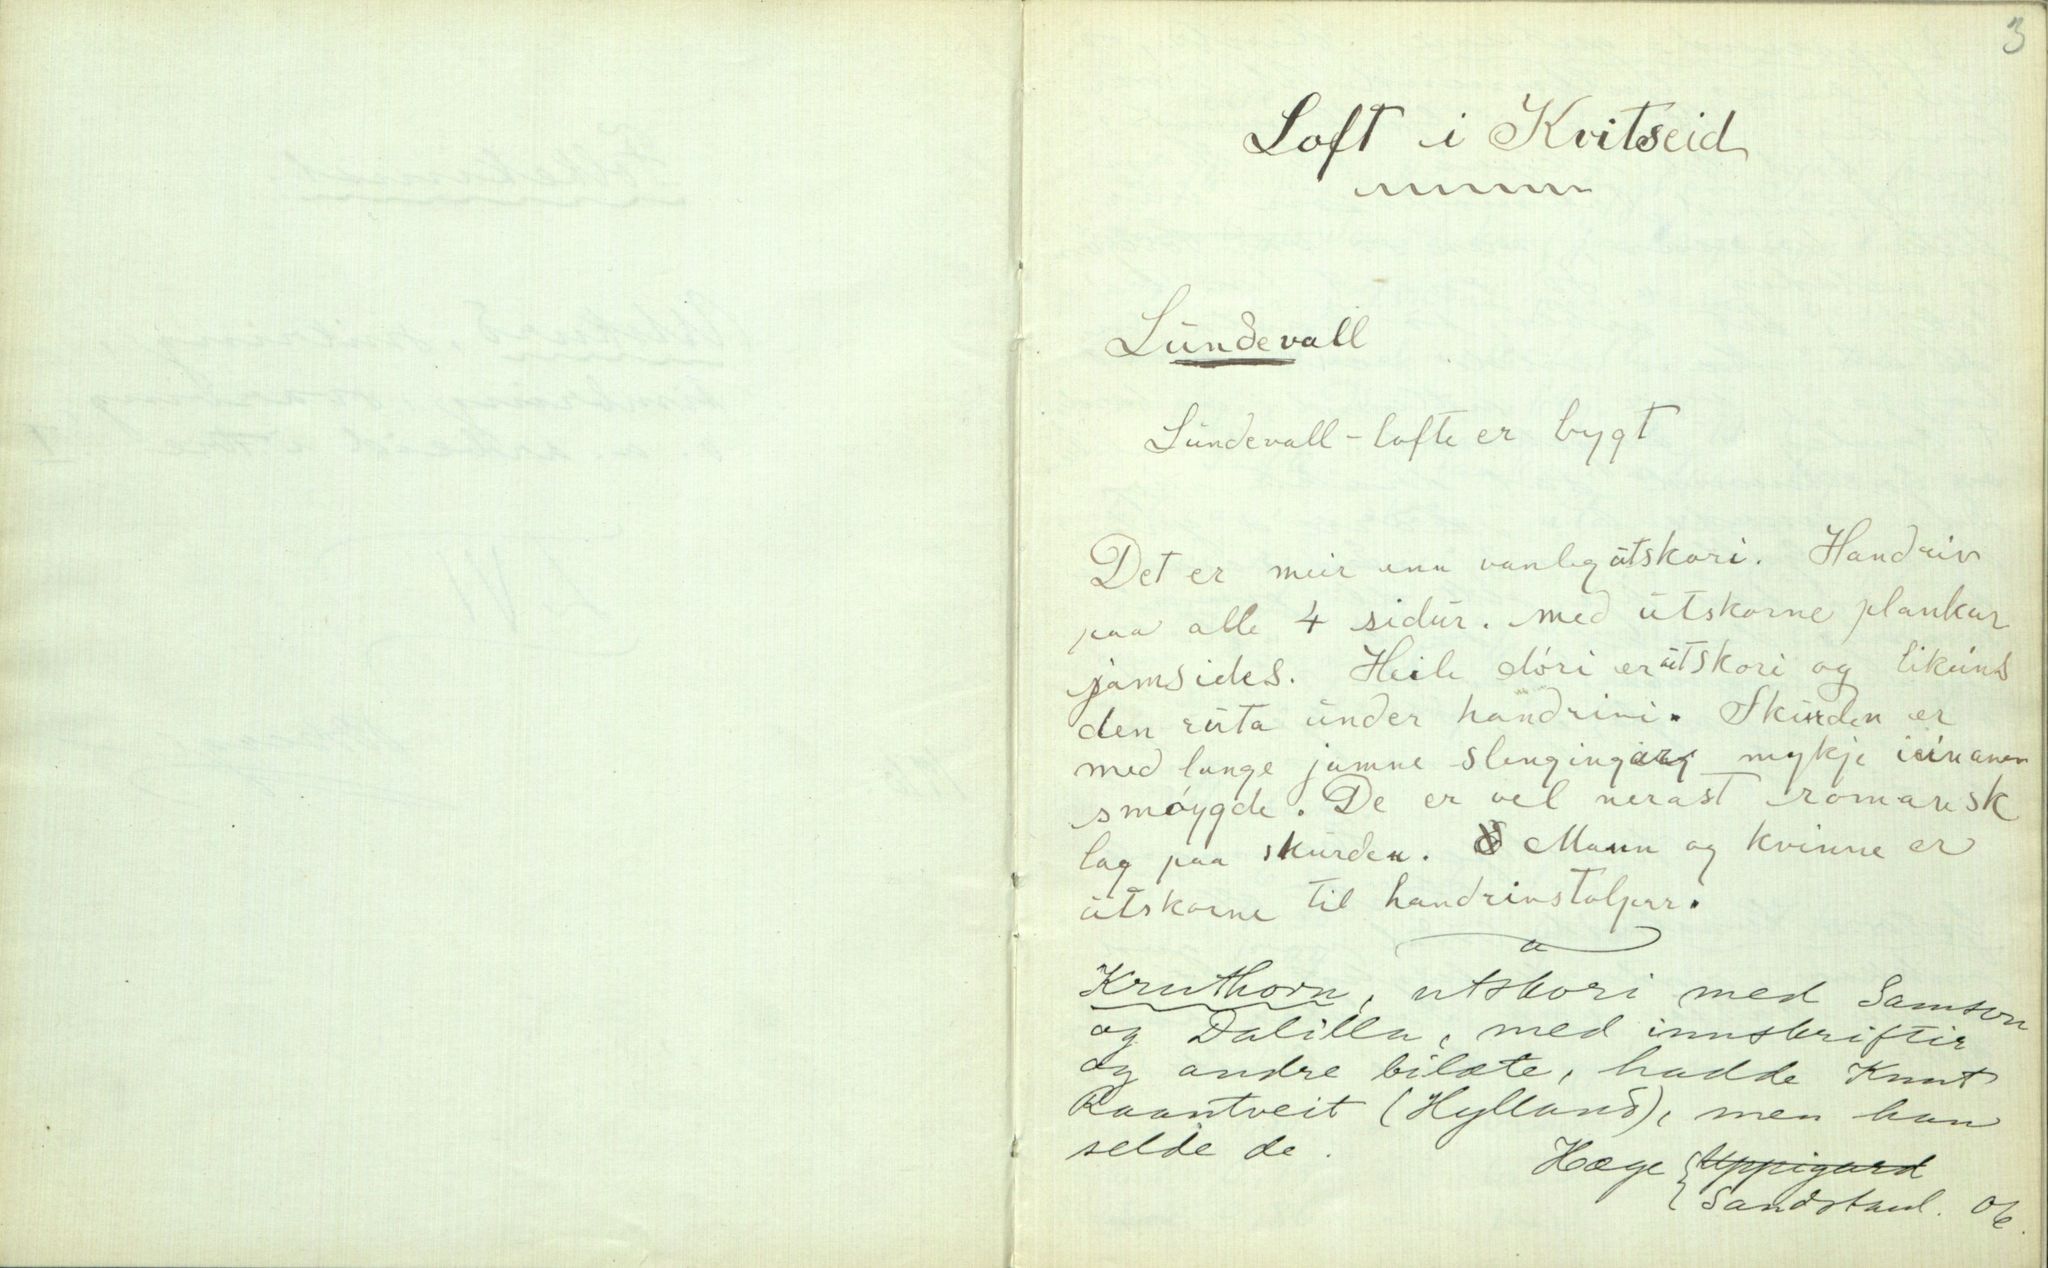 3
Loft i Kvitseid
Lündevall
Lündevall-lofte er bygt
Det er meir enn vanleg ütskori. Handriv
paa alle 4 sidür. med ütskorne plankar
jamsides. Heile dóri er ütskori og likeins
den rüta ünder handrivi. Skürden er
med lange jamne slengingar mykje i einanen
smóygde. De er vel nerast romansk
lag paa skürden. Mann og kvinne er
ütskorne til handrivstolpar.
Kruthorn, utskori med Samson
og Dalilla, med innskriftir
og andre bilæte, hadde Knut
Raantveit (Hylland), men han
selde de.
Hæge { Uppigard
Sandstaul. 06.